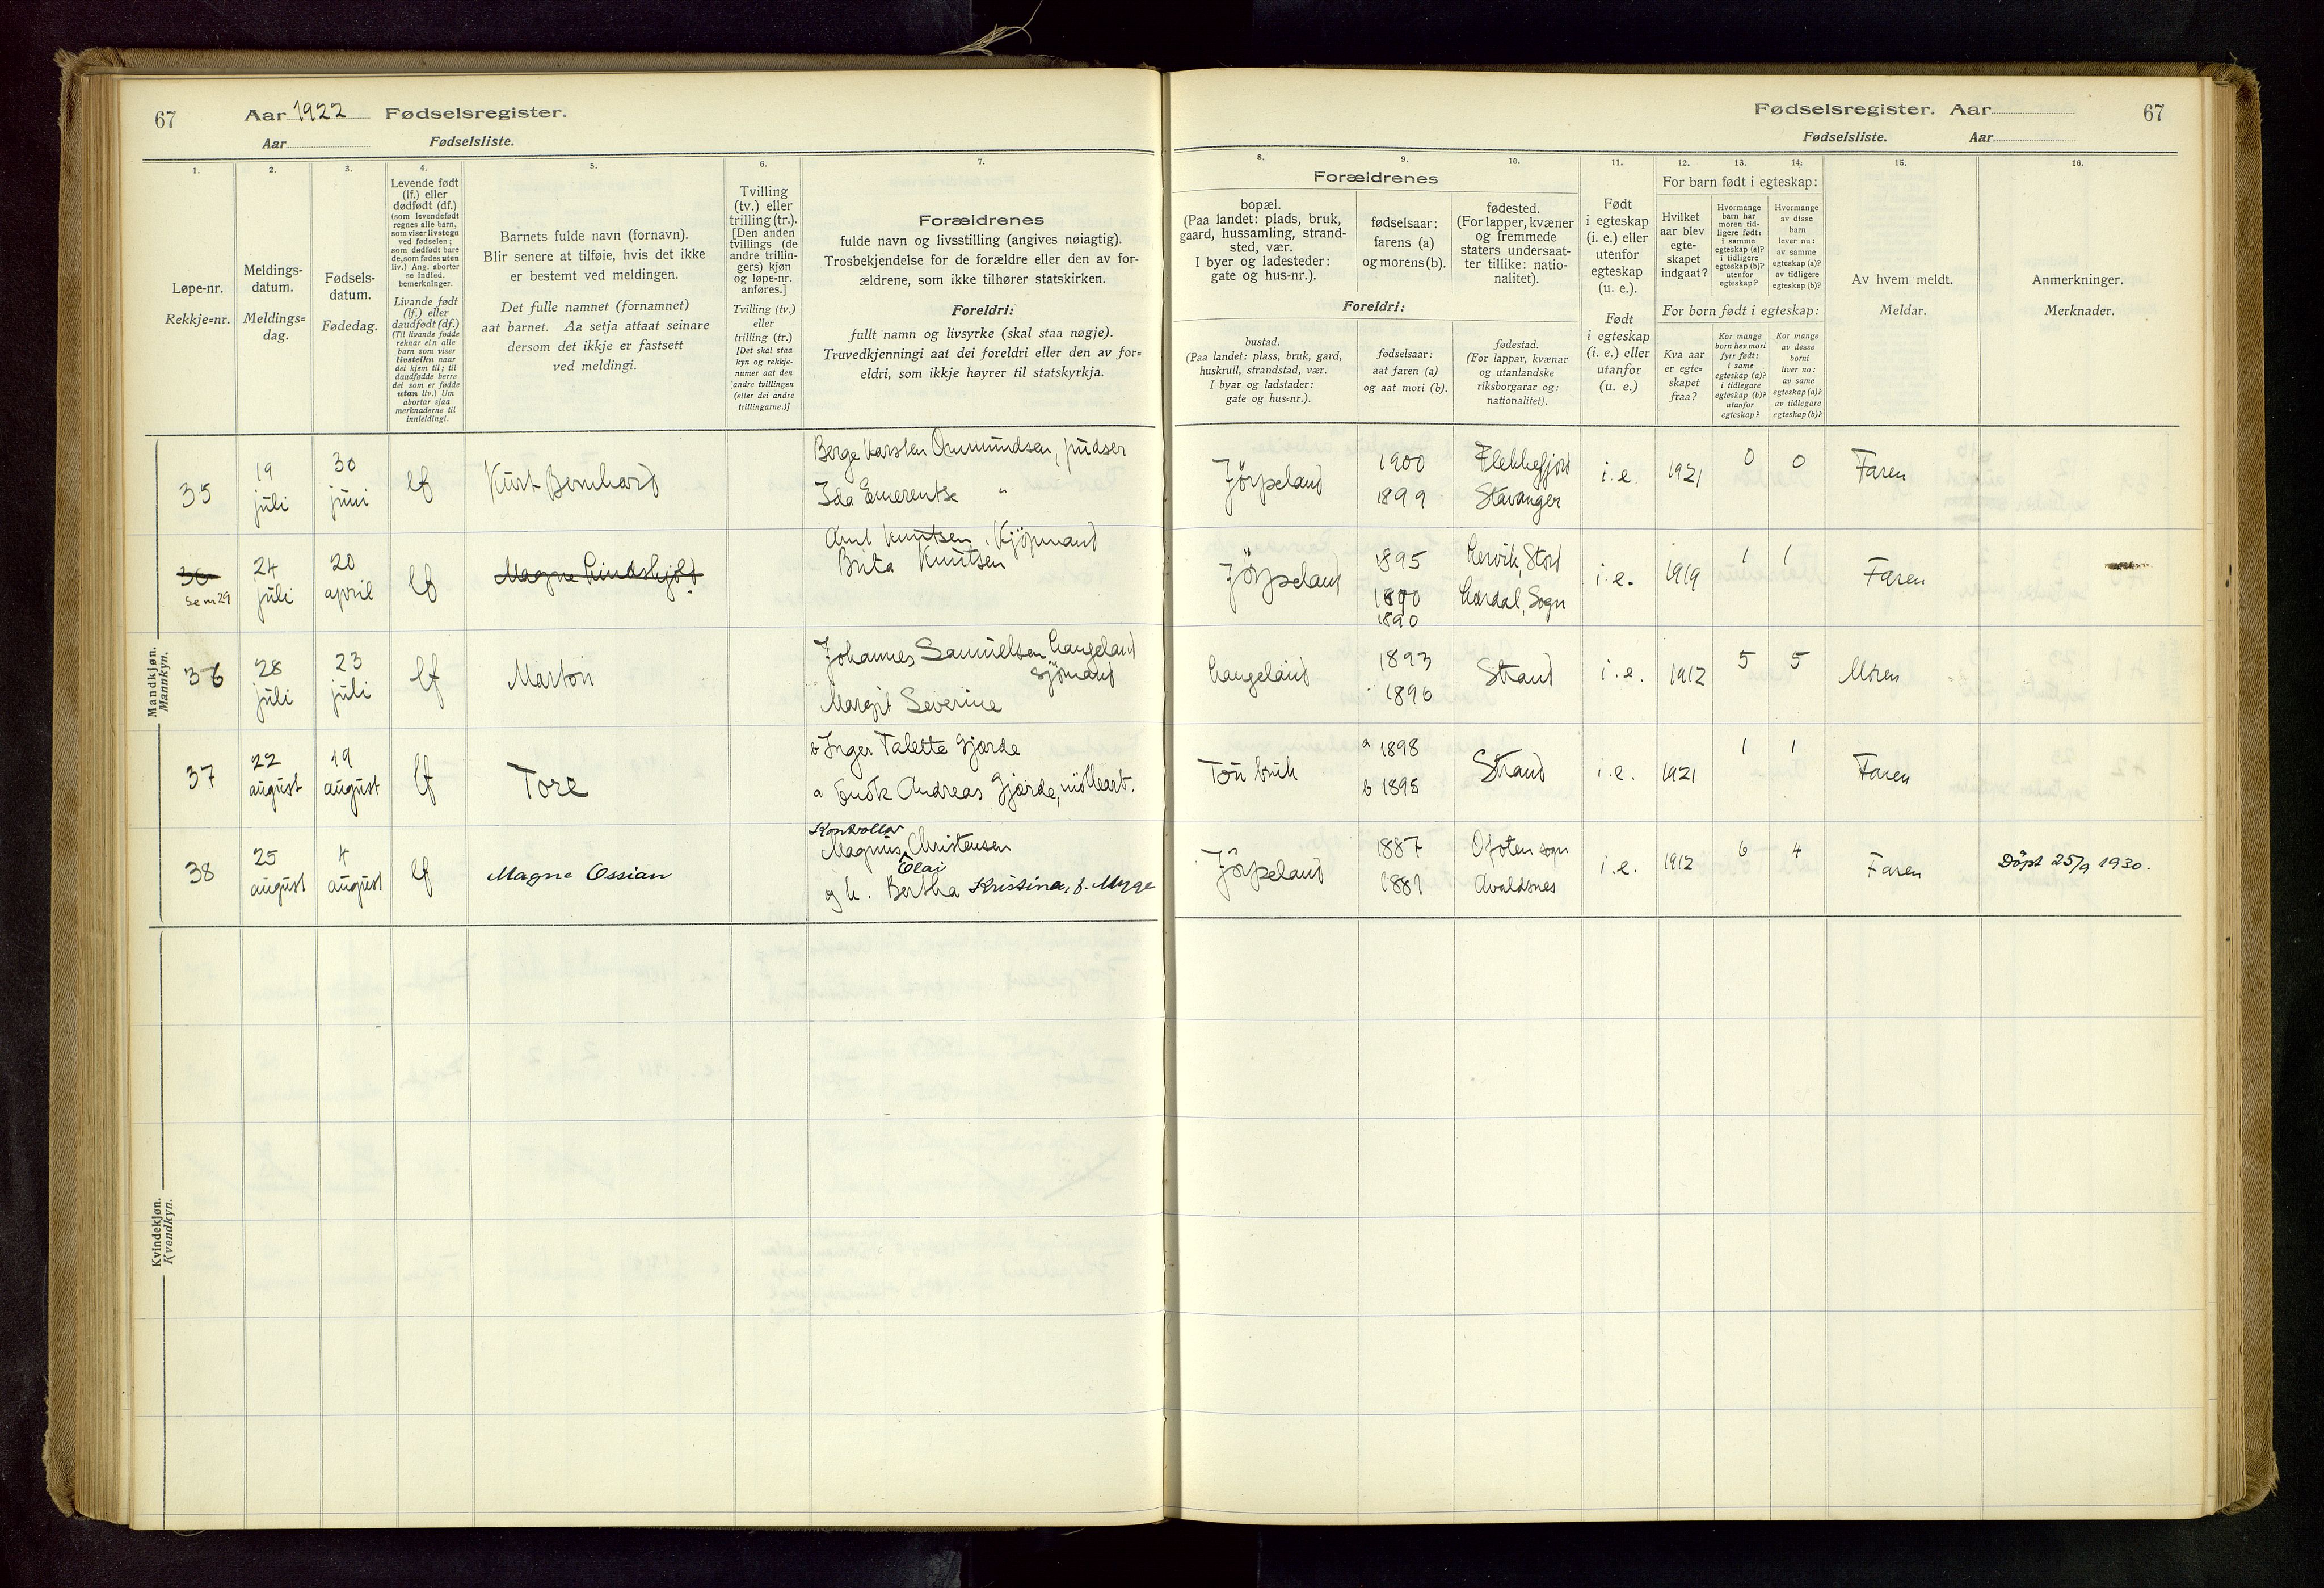 67 Aar 1922 Fødselsregister.
Aar Fødselsliste.
Fødselsregister. Aar 67
Fødselsliste. Aar
1. 2. 3. 4. 5. 6. 7.
Løpe-nr.
Rekkje=nr.
Meldings-
datum.
Meldings=
dag.
Fødsels-
datum.
Fødedag.
Levende født
(lf.) eller
dødfødt (df.)
(som levendefødt
regnes alle barn,
som viser livstegn
ved fødselen;
som dødfødt bare
de, som fødes uten
liv.) Ang. aborter
se indled.
bemerkninger.
Livande født
(lf.) eller
daudfødt (df.)
(Til livande fødde
reknar ein alle
barn som viser
livsteikn naar
dei kjem til; til
daudfødde berre
dei som er fødde
utan liv.) Um
abortar sjaa
merknaderne til
innleidingi.
Barnets fulde navn (fornavn).
Blir senere at tilføie, hvis det ikke
er bestemt ved meldingen.
Det fulle namnet (fornamnet)
aat barnet. Aa setja attaat seinare
dersom det ikkje er fastsett
ved meldingi.
Tvilling
(tv.) eller
trilling (tr.).
[Den anden
tvillings (de
andre trillin-
gers) kjøn
og løpe-nr.
anføres.]
Tvilling (tv.)
eller
trilling (tr.)
[Det skal staa
kyn og rekkje-
numer aat den
andre tvillingen
(eller dei andre
trillingarne.)]
Forældrenes
fulde navn og livsstilling (angives nøiagtig).
Trosbekjendelse for de forældre eller den av for-
ældrene, som ikke tilhører statskirken.
Foreldri:
fullt namn og livsyrke (skal staa nøgje).
Truvedkjenningi aat dei foreldri eller den av for=
eldri, som ikkje høyrer til statskyrkja.
8. 9. 10. 11. 12. 13. 14. 15. 16.
Forældrenes
bopæl.
(Paa landet: plads, bruk,
gaard, hussamling, strand-
sted, vær.
I byer og ladesteder:
gate og hus-nr.).
fødselsaar:
farens (a)
og morens (b).
fødested.
(For lapper, kvæner
og fremmede
staters undersaat-
ter tillike: natio-
nalitet).
Foreldri:
bustad.
(Paa landet: plass, bruk, gard,
huskrull, strandstad, vær.
I byar og ladstader:
gate og hus=nr.).
fødselsaar:
aat faren (a)
og aat mori (b).
fødestad.
(For lappar, kvænar
og utanlandske
riksborgarar og:
nationalitet).
Født
i egteskap
(i. e.) eller
utenfor
egteskap
(u. e.).
Født
i egteskap
(i. e.) eller
utanfor
(u. e.)
For barn født i egteskap:
Hvilket
aar blev
egte-
skapet
indgaat?
Hvormange
barn har
moren tid-
ligere født:
i samme
egteskap (a)?
i tidligere
egteskap (b)?
utenfor
egteskap?
Hvormange
av disse
barn
lever nu:
av samme
egteskap (a)?
av tidligere
egteskap (b)?
For born født i egteskap:
Kva aar
er egte=
skapet
fraa?
Kor mange
born hev mori
fyrr født:
i same
egteskap (a)?
i tidlegare
egteskap (b)?
utanfor
egteskap?
Kor mange
av desse
borni
liver no:
av same
egteskap (a)?
av tidlegare
egteskap (b)?
Av hvem meldt.
Meldar.
Anmerkninger.
Merknader.
Mandkjøn.
Mannkyn.
35 19 juli 30 juni lf Kurt Bernhard
Berge Karsten Ommundsen, pudser
Ida Emerentse "
Jörpeland 1900 Flekkefjord i.e. 1921 0 0 Faren
1899 Stavanger
36 24 juli 20 april lf Magne Lindskjold
Se nr 29
Arnt Knutsen, Kjöpmand
Brita Knutsen
Jörpeland 1895 Lervik, Stord i.e. 1919 1 1 Faren
1890 Lærdal, Sogn
1890
36 28 juli 23 juli lf Marton
Johannes Samuelsen Langeland
Sjömand
Margit Severine
Langeland 1893 Strand i.e. 1912 5 5 Moren
1896
37 22 august 19 august lf Tore
b Inger Talette Gjerde
a Endre Andreas Gjerde, möllearb.
Tou bruk a 1898 Strand i.e. 1921 1 1 Faren
b 1895
38 25 august 4 august lf Magne Ossian
Kontrollør
Magnus Christensen
Elai
og h. Bertha Kristina, f. Mygge
Jörpeland 1887 Ofoten sogn i.e. 1912 6 4 Faren Döpt 25/9 1930.
1881 Avaldsnes
Kvindekjøn.
Kvendkyn.